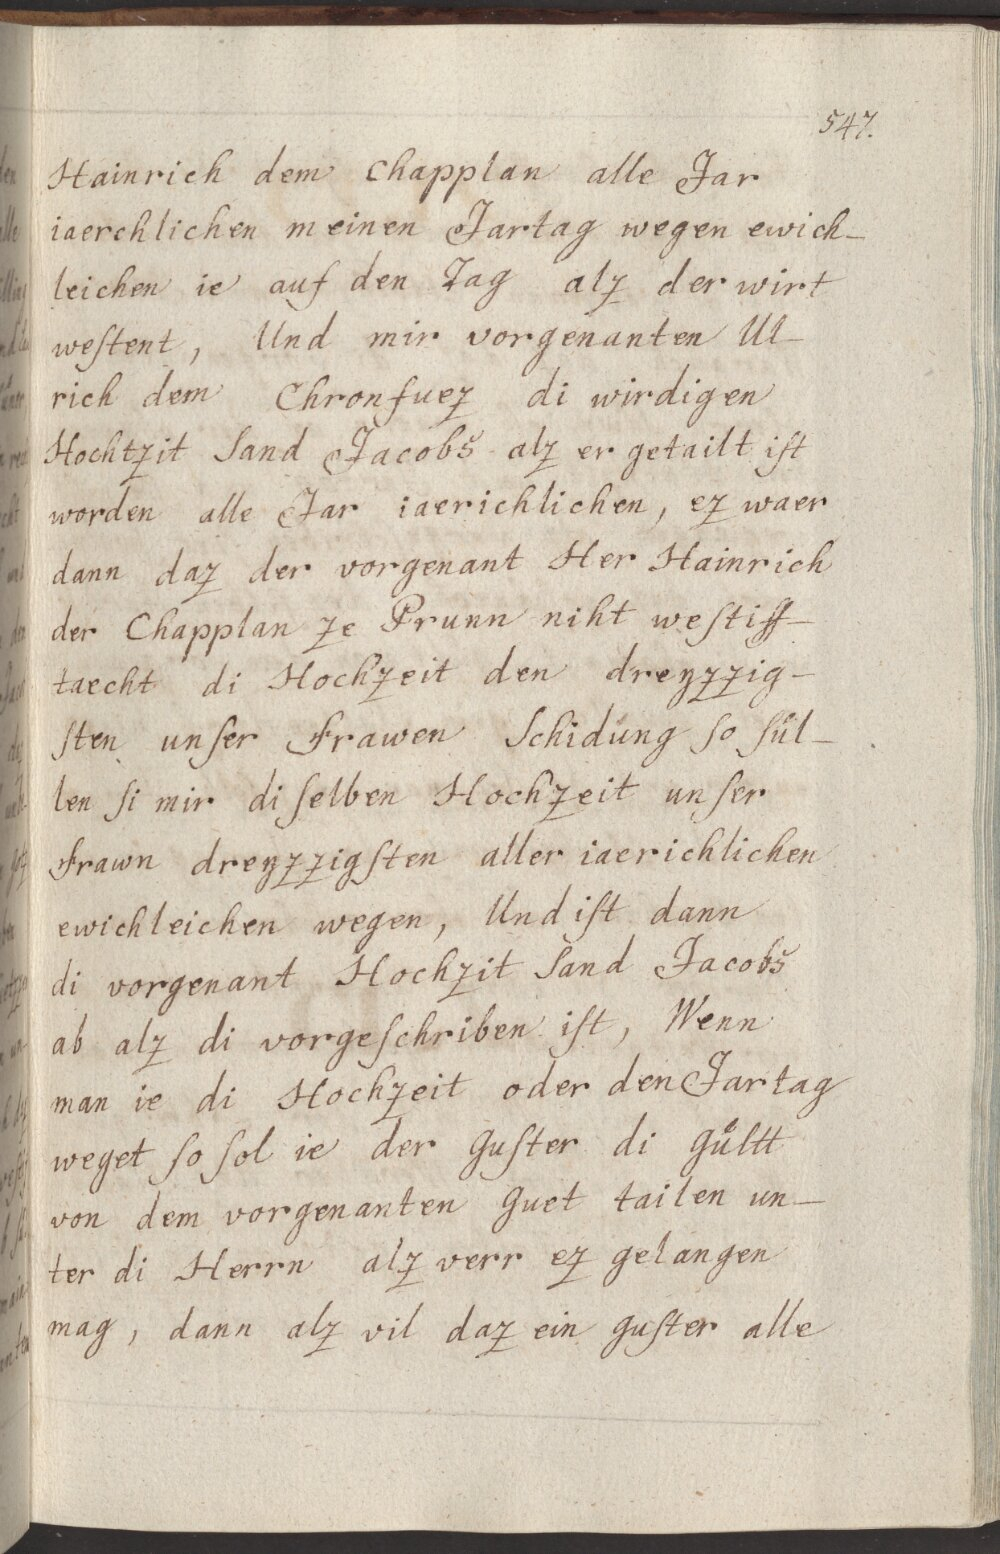 547.
Hainrich dem Chapplan alle Jar
iaerchlichen meinen Jartag wegen ewich-
leichen ie auf den Tag alz der wirt
weſtent, Und mir vorgenanten Ul-
rich dem Chronfuez di wirdigen
Hochtzit Sand Jacobs alz er getailt iſt
worden alle Jar iaerichlichen, ez waer
dann daz der vorgenant Her Hainrich
der Chapplan ze Prunn niht weſtiff-
taecht di Hochzeit den dreyzzig-
ſten unſer Frawen Schidung ſo ſül-
len ſi mir di ſelben Hochzeit unſer
Frawn dreyzzigſten aller iaerichlichen
ewichleichen wegen, Und iſt dann
di vorgenant Hochzit Sand Jacobs
ab alz di vorgeſchriben iſt, Wenn
man ie di Hochzeit oder den Jartag
weget ſo ſol ie der Guſter di Guͤltt
von dem vorgenanten Guet tailen un-
ter di Herrn alz verr ez gelangen
mag, dann alz vil daz ein Guſter alle